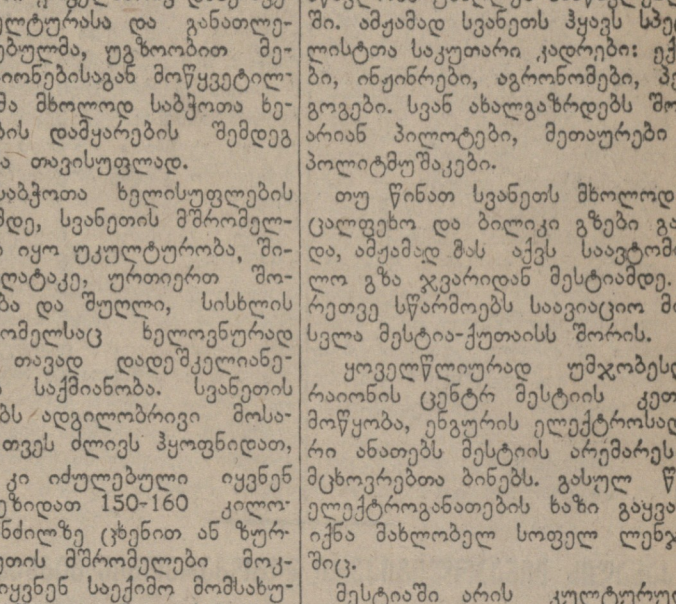 ულტურასა და განათლე-
ებულმა, უგზოობით მე-
იონებისაგან მოწყვეტილ-
მა მხოლოდ საბჭოთა ხე-
ბის დამყარების შემდეგ
ა თავისუფლად.
საბჭოთა ხელისუფლების
მდე, სვანეთის მშრომელ-
ი იყო უკულტურობა, ში-
ღატაკე, ურთიერთ შო-
ბა და შუღლი, სისხლის
ომელსაც ხელოვნურად
თავად დადეშკელიანე-
საქმიანობა. სვანეთის
ბს ადგილობრივი მოსა-
თვეს ძლივს ჰყოფნიდათ,
კი იძულებული იყვნენ
ეზიდათ 150-160 კილო-
ნძილზე ცხენით ან ზურ-
ეთის მშრომელები მოკ-
იყვნენ საექიმო მომსახუ-
ში. ამჟამად სვანეთს ჰყავს სპე
ლისტთა საკუთარი კადრები: ექ
ბი, ინჟინრები, აგრონომები, პე
გოგები. სვან ახალგაზრდებს შო
არიან პილოტები, მეთაურები
პოლიტმუშაკები.
თუ წინათ სვანეთს მხოლოდ
ცალფეხო და ბილიკი გზები გა
და, ამჟამად მას აქვს საავტომ
ლო გზა ჯვარიდან მესტიამდე.
რეთვე სწარმოებს საავიაციო მი
სვლა მესტია-ქუთაისს შორის.
ყოველწლიურად უმჯობესდ
რაიონის ცენტრ მესტიის კეთ
მოწყობა, ენგურის ელექტროსად
რი ანათებს მესტიის არემარეს
მცხოვრებთა ბინებს. გასულ წ
ელექტროგანათების ხაზი გაყვა
იქნა მახლობელ სოფელ ლენჯ
შიც.
მესტიაში არის კულტურულ